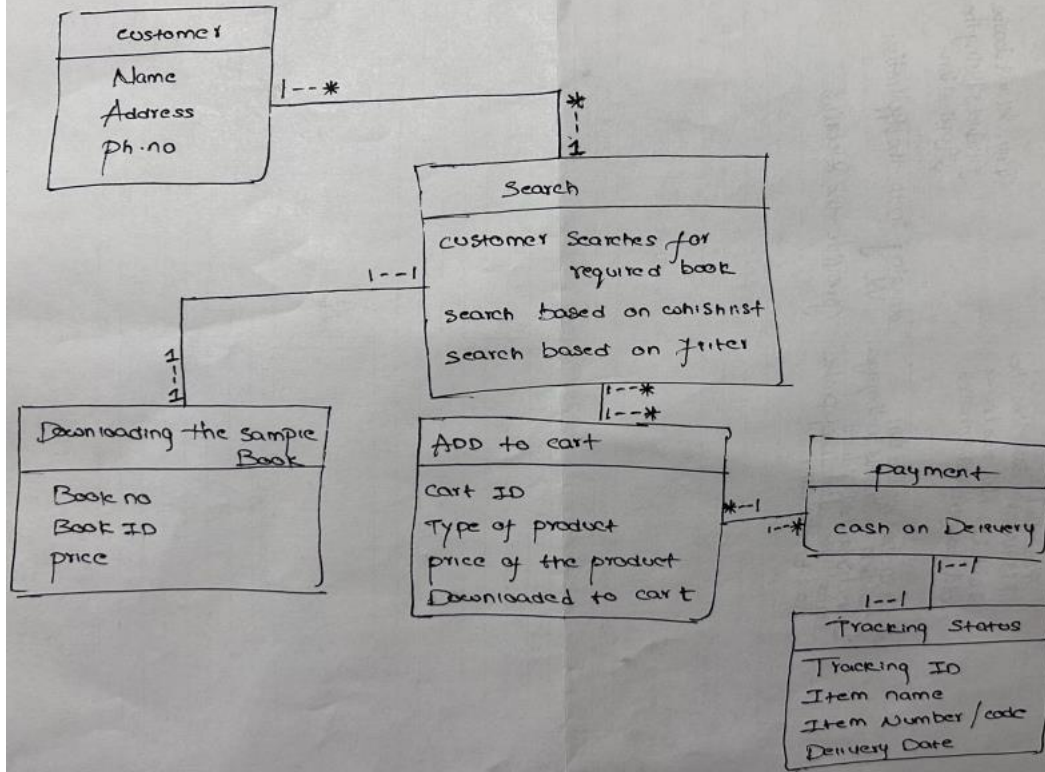 customer
Name
Address
ph.no
1--*
*--1
Search
customer Searches for
required book
search based on
search based on
1--1
1--1
Downloading the sample
Book
Book no
Book ID
price
1--*
1--*
ADD to cart
Cart ID
Type of product
price of the product
Downloaded to cart
*--1
1--*
payment
cash on Delivery
1--1
1--1
Tracking Status
Tracking ID
Item name
Item Number/code
Delivery Date